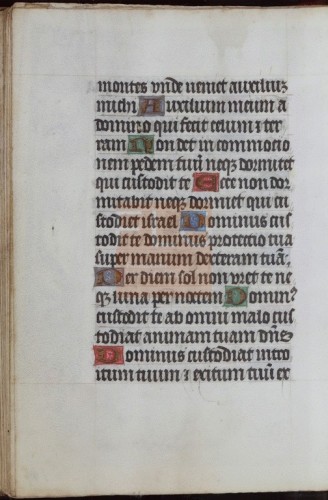 montes vnde veniet auxiliuz
michi Auxilium meum a
domino qui fecit celum ⁊ ter
ram Non det in commocio
nem pedem tuū neqꝫ dormitet
qui custodit te Ecce non dor
mitabit neqꝫ dormiet qui cu
stodiet israel Dominus cus
todit te dominus protectio tua
super manum dexteram tuā.
Per diem sol non vret te ne
qꝫ luna per noctem Domin9
custodit te ab omni malo cus
todiat animam tuam dn̄s
Dominus custodiat intro
itum tuum ⁊ exitum tuū ex